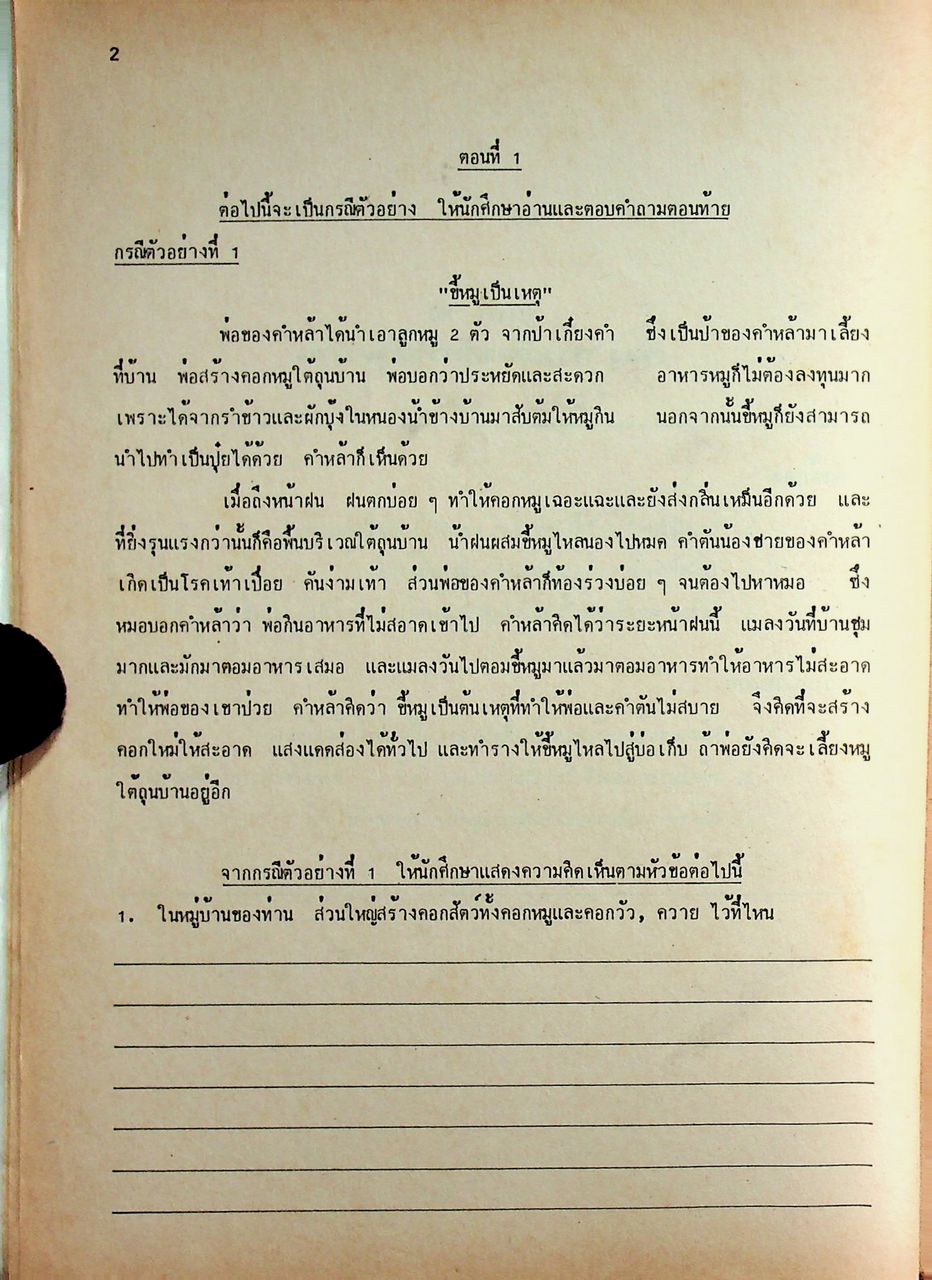 2
ตอนที่ 1
ต่อไปนี้จะเป็นกรณีตัวอย่าง ให้นักศึกษาอ่านและตอบคำถามตอนท้าย
กรณีตัวอย่างที่ 1
"ขี้หมูเป็นเหตุ"
พ่อของคำหล้าได้นำเอาลูกหมู 2 ตัว จากป้าเกี๋ยงคำ ซึ่งเป็นป้าของคำหล้ามาเลี้ยง
ที่บ้าน พ่อสร้างคอกหมูใต้ถุนบ้าน พ่อบอกว่าประหยัดและสะดวก อาหารหมูก็ไม่ต้องลงทุนมาก
เพราะได้จากรำข้าวและผักบุ้งในหนองน้ำข้างบ้านมาสับต้มให้หมูกิน นอกจากนั้นขี้หมูก็ยังสามารถ
นำไปทำเป็นปุ๋ยได้ด้วย คำหล้าก็เห็นด้วย
เมื่อถึงหน้าฝน ฝนตกบ่อย ๆ ทำให้คอกหมูเฉอะแฉะและยังส่งกลิ่นเหม็นอีกด้วย และ
ที่ยิ่งรุนแรงกว่านั้นก็คือพื้นบริเวณใต้ถุนบ้าน น้ำฝนผสมขี้หมูไหลนองไปหมด คำตันน้องชายของคำหล้า
เกิดเป็นโรคเท้าเปื่อย คันง่ามเท้า ส่วนพ่อของคำหล้าก็ท้องร่วงบ่อย ๆ จนต้องไปหาหมอ ซึ่ง
หมอบอกคำหล้าว่า พ่อกินอาหารที่ไม่สอาดเข้าไป คำหล้าคิดได้ว่าระยะหน้าฝนนี้ แมลงวันที่บ้านชุม
มากและมักมาตอมอาหารเสมอ และแมลงวันไปตอมขี้หมูมาแล้วมาตอมอาหารทำให้อาหารไม่สะอาด
ทำให้พ่อของเขาป่วย คำหล้าคิดว่า ขี้หมูเป็นต้นเหตุที่ทำให้พ่อและคำตันไม่สบาย จึงคิดที่จะสร้าง
คอกใหม่ให้สะอาด แสงแดดส่องได้ทั่วไป และทำรางให้ขี้หมูไหลไปสู่บ่อเก็บ ถ้าพ่อยังคิดจะเลี้ยงหมู
ใต้ถุนบ้านอยู่อีก
จากกรณีตัวอย่างที่ 1 ให้นักศึกษาแสดงความคิดเห็นตามหัวข้อต่อไปนี้
1. ในหมู่บ้านของท่าน ส่วนใหญ่สร้างคอกสัตว์ทั้งคอกหมูและคอกวัว, ควาย ไว้ที่ไหน